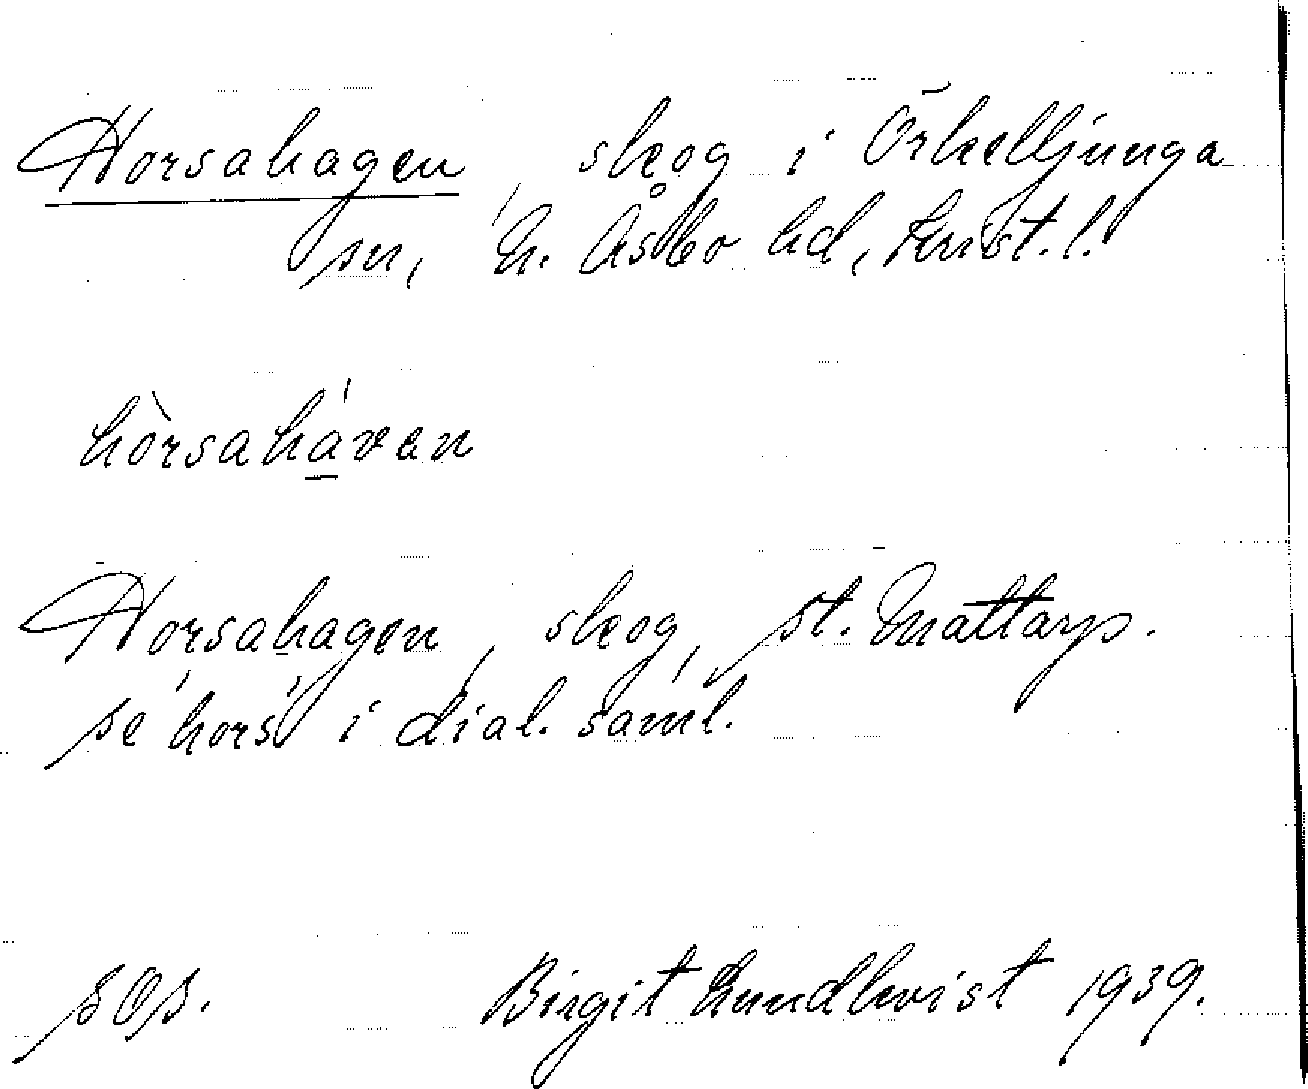 Horsahagen, skog i Örkelljunga
sn, N. Åsbo hd, Krist. l.
hòrsahá̱ven
Horsahagen, skog, St. Mattarp.
se "hors" i dial. saml.
sOs. Birgit Lundkvist 1939.